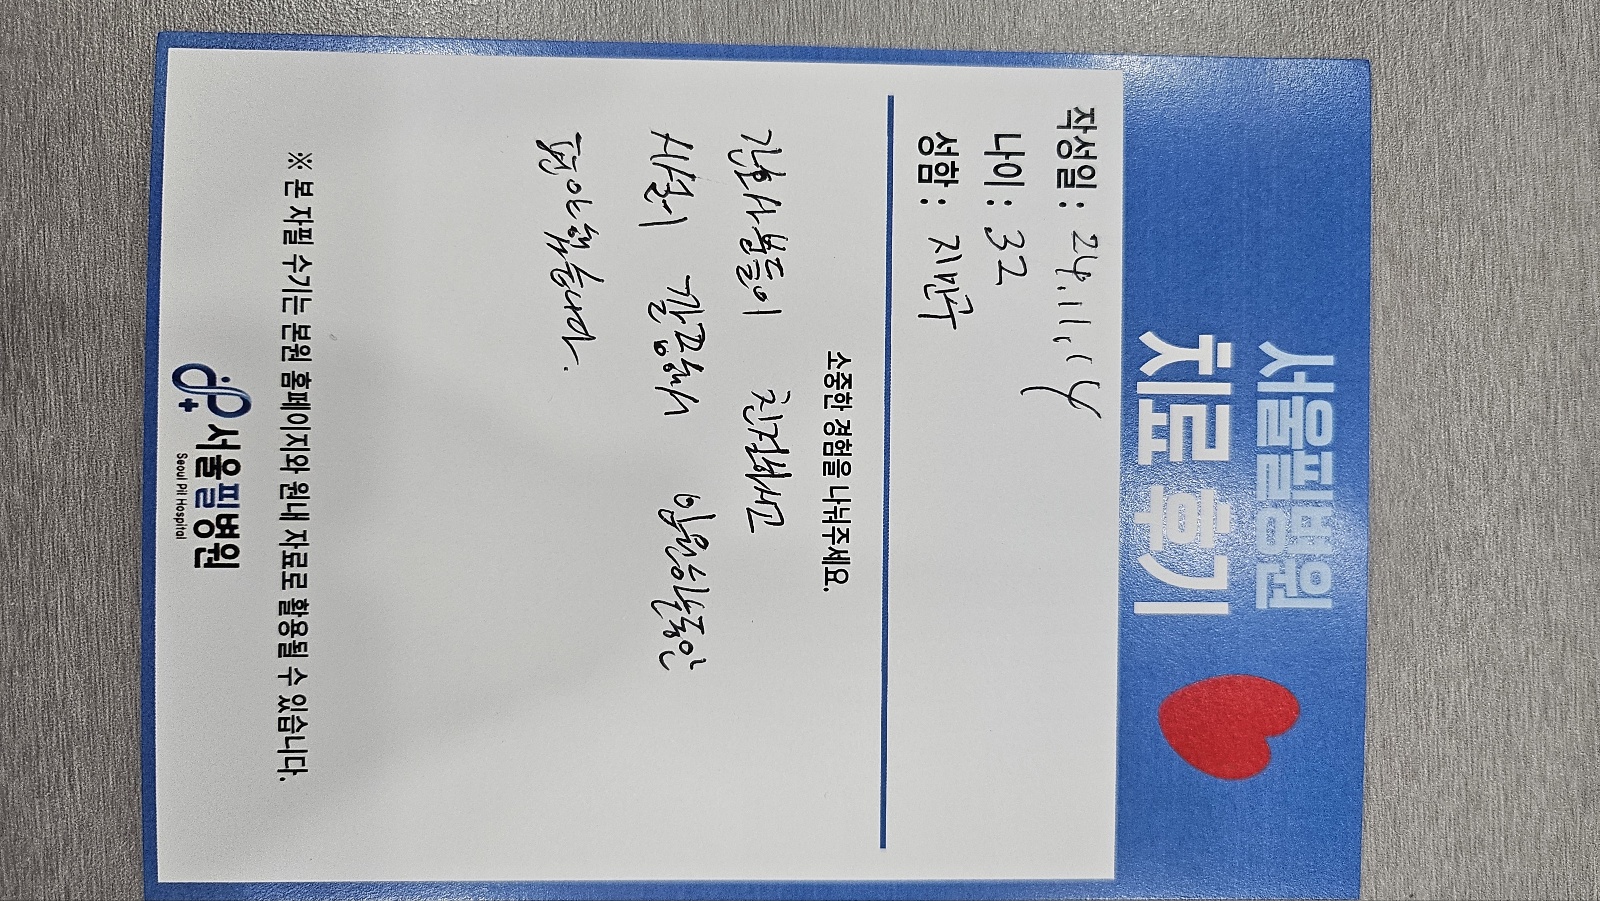 서울필병원
치료 후기
작성일 : 24.11.14
나이 : 32
성함 : 지민구
소중한 경험을 나눠주세요.
간호사분들이 친절하시고
시설이 깔끔해서 입원해있는동안
편안했습니다.
※ 본 자필 수기는 본원 홈페이지와 원내 자료로 활용될 수 있습니다.
서울필병원
Seoul Pil Hospital